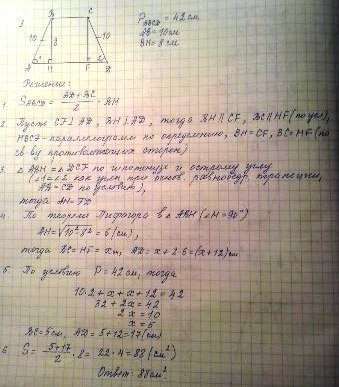 B C
10 10
8
A H F D
P ABCD = 42 см
AB = 10 см
BH = 8 см
Решение:
1. S ABCD = (AD + BC)/2 · BH
2. Пусть CF ⊥ AD, BH ⊥ AD, тогда BH ∥ CF, BC ∥ HF (по усл),
HBCF - параллелограмм по определению, BH = CF, BC = HF (по
св-ву противолежащих сторон)
3. △ABH = △DCF по гипотенузе и острому углу
∠1 = ∠2 как углы при основ. равнобедр. трапеции,
AB = CD по условию),
тогда AH = FD
4. По теореме Пифагора в △ABH (∠H = 90°)
AH = √10² - 8² = 6 (см),
тогда BC = HF = x, AD = x + 2·6 = (x+12) см
5. По условию P = 42 см, тогда
10·2 + x + x + 12 = 42
32 + 2x = 42
2x = 10
x = 5
BC = 5 см, AD = 5 + 12 = 17 (см)
6. S = (5+17)/2 · 8 = 22 · 4 = 88 (см²)
Ответ: 88 см²